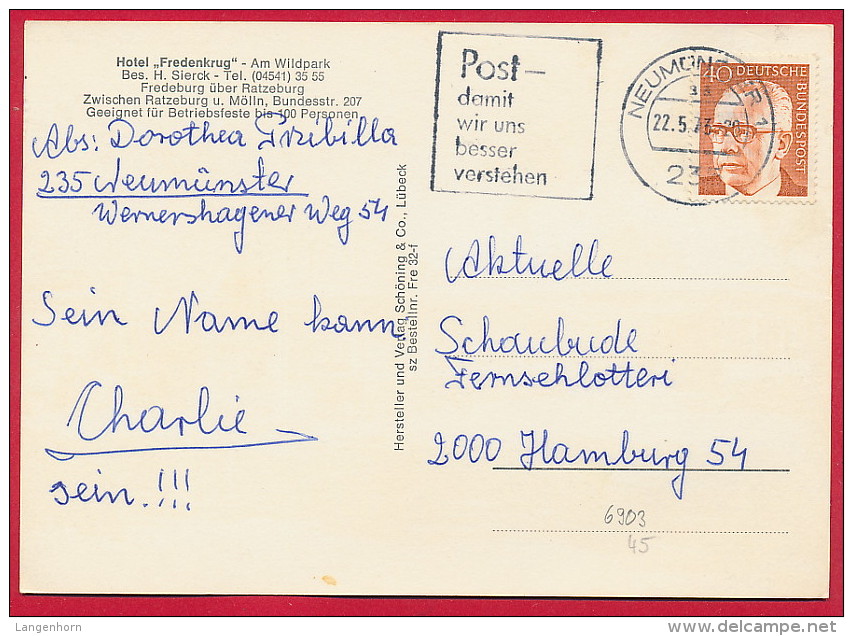 Hotel „Fredenkrug" - Am Wildpark
Bes. H. Sierck - Tel. (04541) 35 55
Fredeburg über Ratzeburg
Zwischen Ratzeburg u. Mölln, Bundesstr. 207
Geeignet für Betriebsfeste bis 100 Personen
Abs: Dorothea Przibilla
235 Neumünster
Wernershagener Weg 54
Sein Name kann
Charlie
sein.!!!
Hersteller und Verlag Schöning & Co., Lübeck
sz Bestellnr. Fre 32-f
Post -
damit
wir uns
besser
verstehen
NEUMÜNSTER 1
22.5.73
40 DEUTSCHE
BUNDESPOST
Aktuelle
Schaubude
Fernsehlotteri
2000 Hamburg 54
6903
45
Langenhorn
delcampe.net